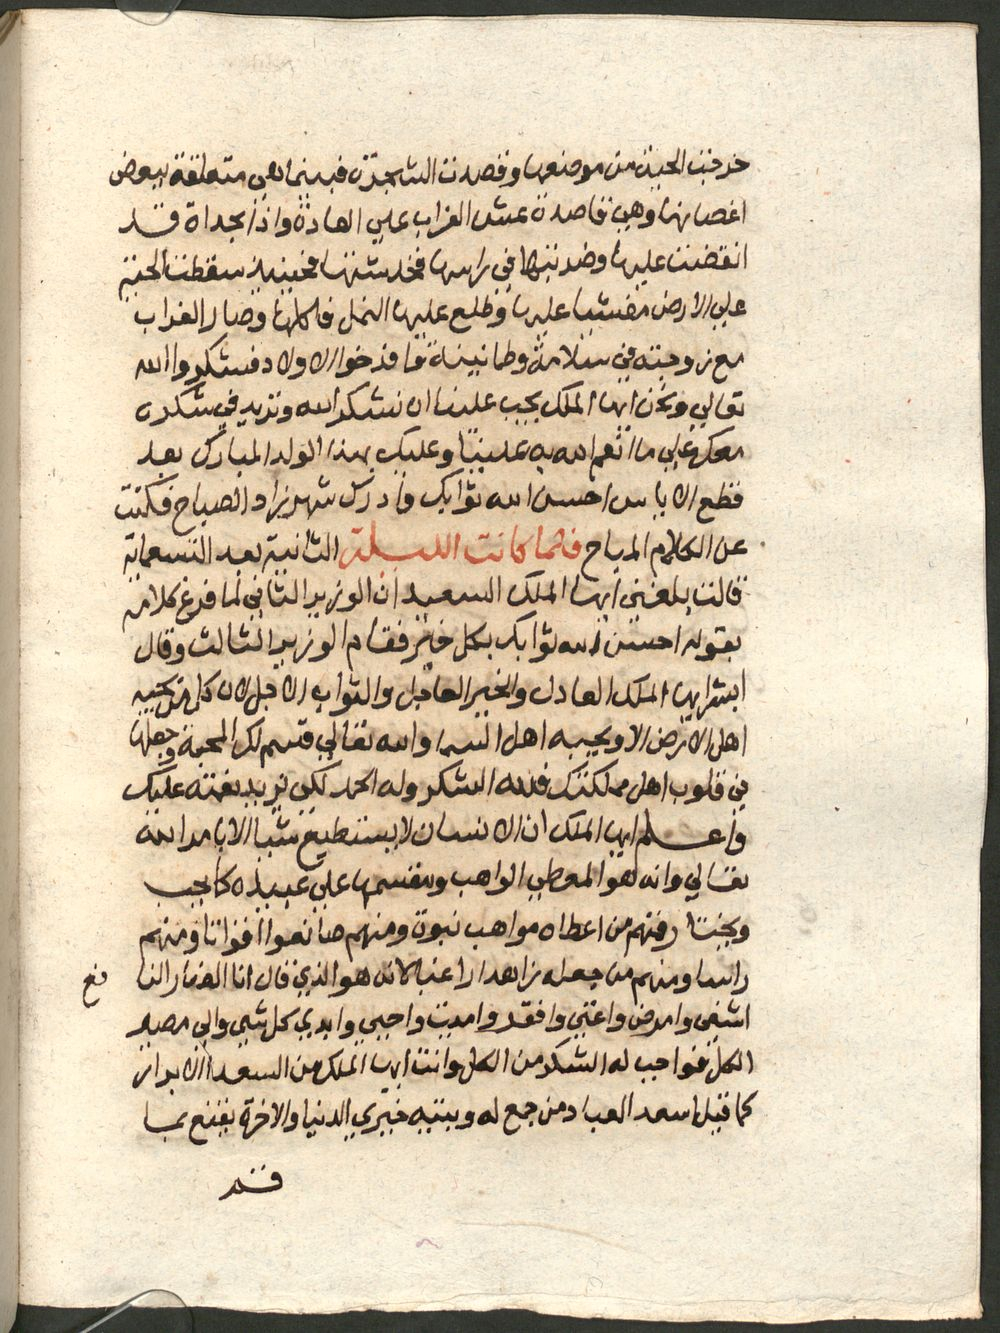 خرجت الحية من موضعها وقصدت الشجرة فبينما هي متعلقة ببعض
اغصانها وهي قاصدة عش الغراب علي العادة واذا بحداة قد
انقضت عليها وضربتها في راسها فخدشتها فحينيذ سقطت الحية
علي الارض مغشيا عليها وطلع عليها النمل فاكلها وصار الغراب
مع زوجته في سلامة وطمانينة وافرخوا الاولاد فشكروا الله
تعالي ونحن ايها الملك يجب علينا ان نشكر الله ونزيد في شكره
معكم علي ما انعم الله به علينا وعليك بهذا الولد المبارك بعد
قطع الاياس احسن الله ثوابك وادرك شهرزاد الصباح فسكتت
عن الكلام المباح فلما كانت الليلة الثانية بعد التسعماية
قالت بلغني ايها الملك السعيد ان الوزير الثاني لما فرغ كلامه
بقوله احسن الله ثوابك بكل خير فقام الوزير الثالث وقال
ابشر ايها الملك العادل والخير العاجل والثواب الاجل لان كل من يحبه
اهل الارض الا ويحبه اهل السما والله تعالي قسم لك المحبة وجعلها
في قلوب اهل مملكتك فلله الشكر وله الحمد لكي يزيد نعمته عليك
واعلم ايها الملك ان الانسان لا يستطيع شيا الا بامر الله
تعالي وانه هو المعطي الواهب ويقسمها علي عبيده كما يحب
ويختار فمنهم من اعطاه مواهب نبوة ومنهم صانعوا اقواتا ومنهم
راسا ومنهم من جعله زاهدا راغبا لانه هو الذي قال انا الضار النا
فع
اشفي وامرض واغني وافقر واميت واحيي وابدي كل شي والي مصير
الكل فواجب له الشكر من الكل وانت ايها الملك من السعدا الابرار
كما قيل اسعد العباد من جمع له وبنيه خيري الدنيا والاخرة يقنع بما
قسم